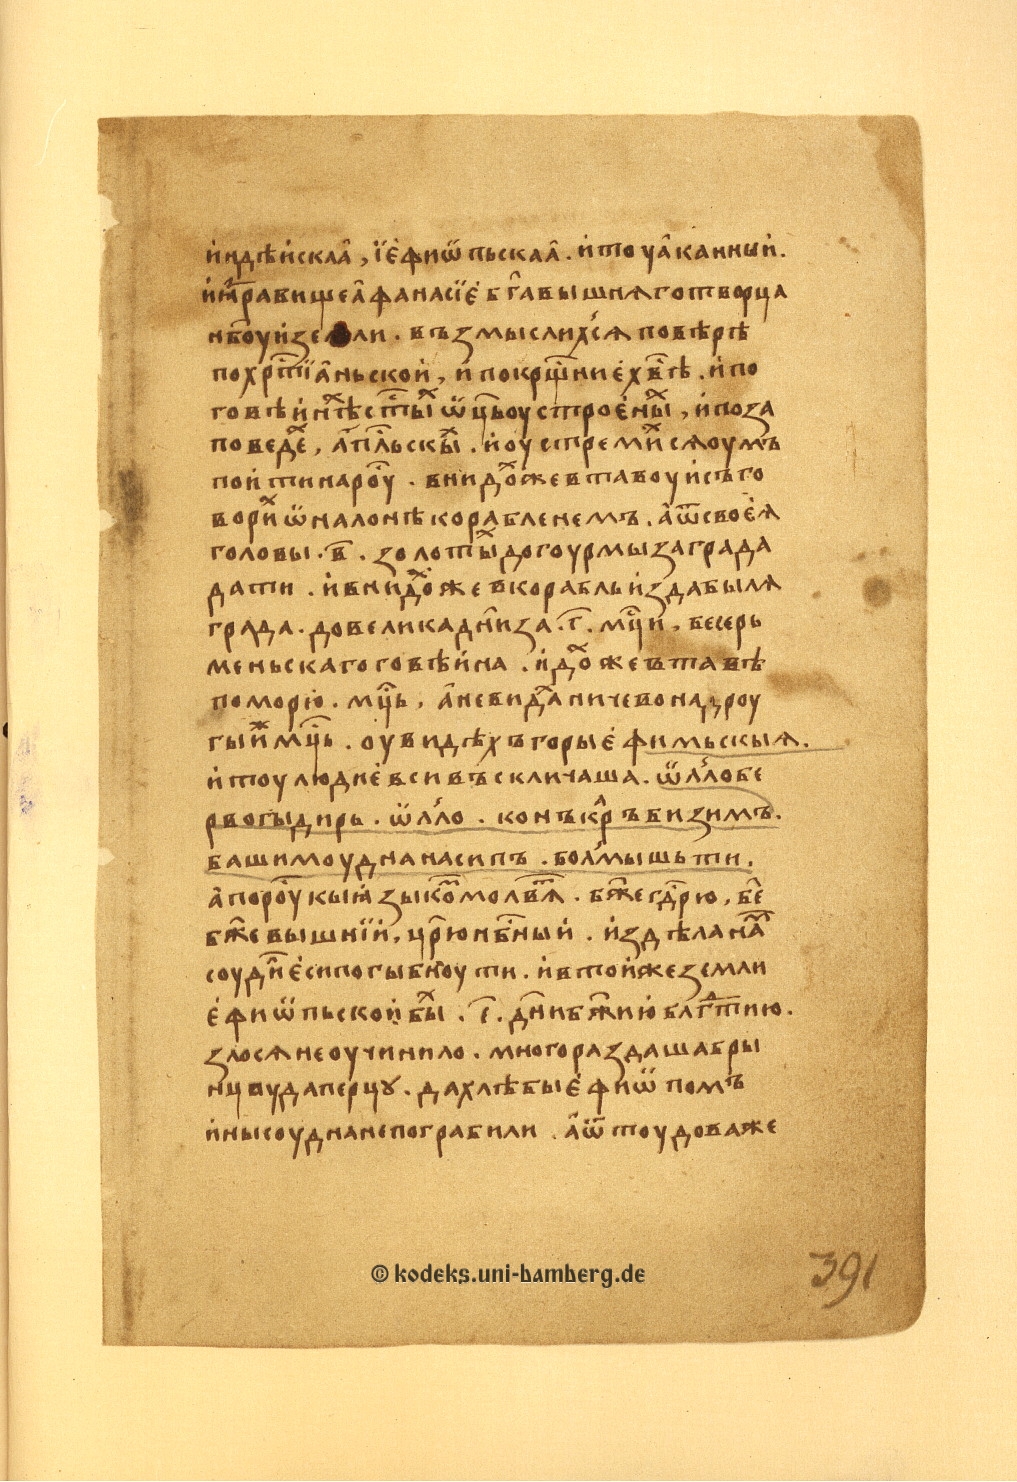 и҆ндѣи҆скаа̑, ї҆е҆фиѡ҆пьскаа̑. и҆ тоу ѧ҆канныи҆.
и҆ мⷬ҇рабище а҆фанасїе҆ бг҃а вышнѧго творца
нб҃оу и҆ земли. възмыслихсѧ по вѣрѣ
по хрⷭ҇тїа҆ньскои҆, и҆ по крщ҃нїи е҆ хв҃ѣ. и҆ по
говѣи҆нⷯѣ ст҃ыⷯ ѡ҆ц҃ь оустрое҆ныⷯ, и҆ по за
поведеⷯ, а҆пⷭ҇льскыⷯ. и҆ оустремиⷯсѧ оумъ
пои҆ти на роу҃. внидоⷯ же в тавоу и҆ съго
вориⷯ ѡ҆ налонѣ корабленемъ. а҆ ѿ свое҆ѧ
головы. в҃. золотыⷯ до гоурмыза града
дати. и҆ внидоⷯ же в корабль и҆з дабылѧ
града. до велика дн҃и за. г҃. мцⷭ҇и, бесерь
меньскаго говѣи҆на. и҆доⷯ же въ тавѣ
по морю. мцⷭ҇ь, а҆ не видаⷯ ничево на дроу
гыиⷤ мцⷭ҇ь. оувидѣхъ горы е҆фимьскыѧ.
и҆ тоу людие҆ вси въскличаша. ѡ҆лло бе
рвогыдирь. ѡ҆лло. конъкаⷬ ъ бизимъ.
башимоудна насипъ. болмышьти.
а҆ по роу҃кыи҆ ꙗзыкоⷨ молвѧⷮ. бж҃е гдⷭ҇рю, бж҃е
бж҃е вышнїи҆, црⷭ҇ю нбⷭ҇ныи҆. и҆здѣ на
соудиⷧ е҆си погыбноути. и҆ в тои҆ же земли
е҆фиѡ҆пьскои҆ быⷯ. г҃. дн҃и бж҃иею҆ блгⷣтию.
зло сѧ не оучинило. много раздаша бры
нцвуда перцꙋ. да хлѣбы е҆фиѡ҆помъ
и҆ны соудна не пограбили. а҆ ѿтоудова же
391
© kodeks.uni-bamberg.de